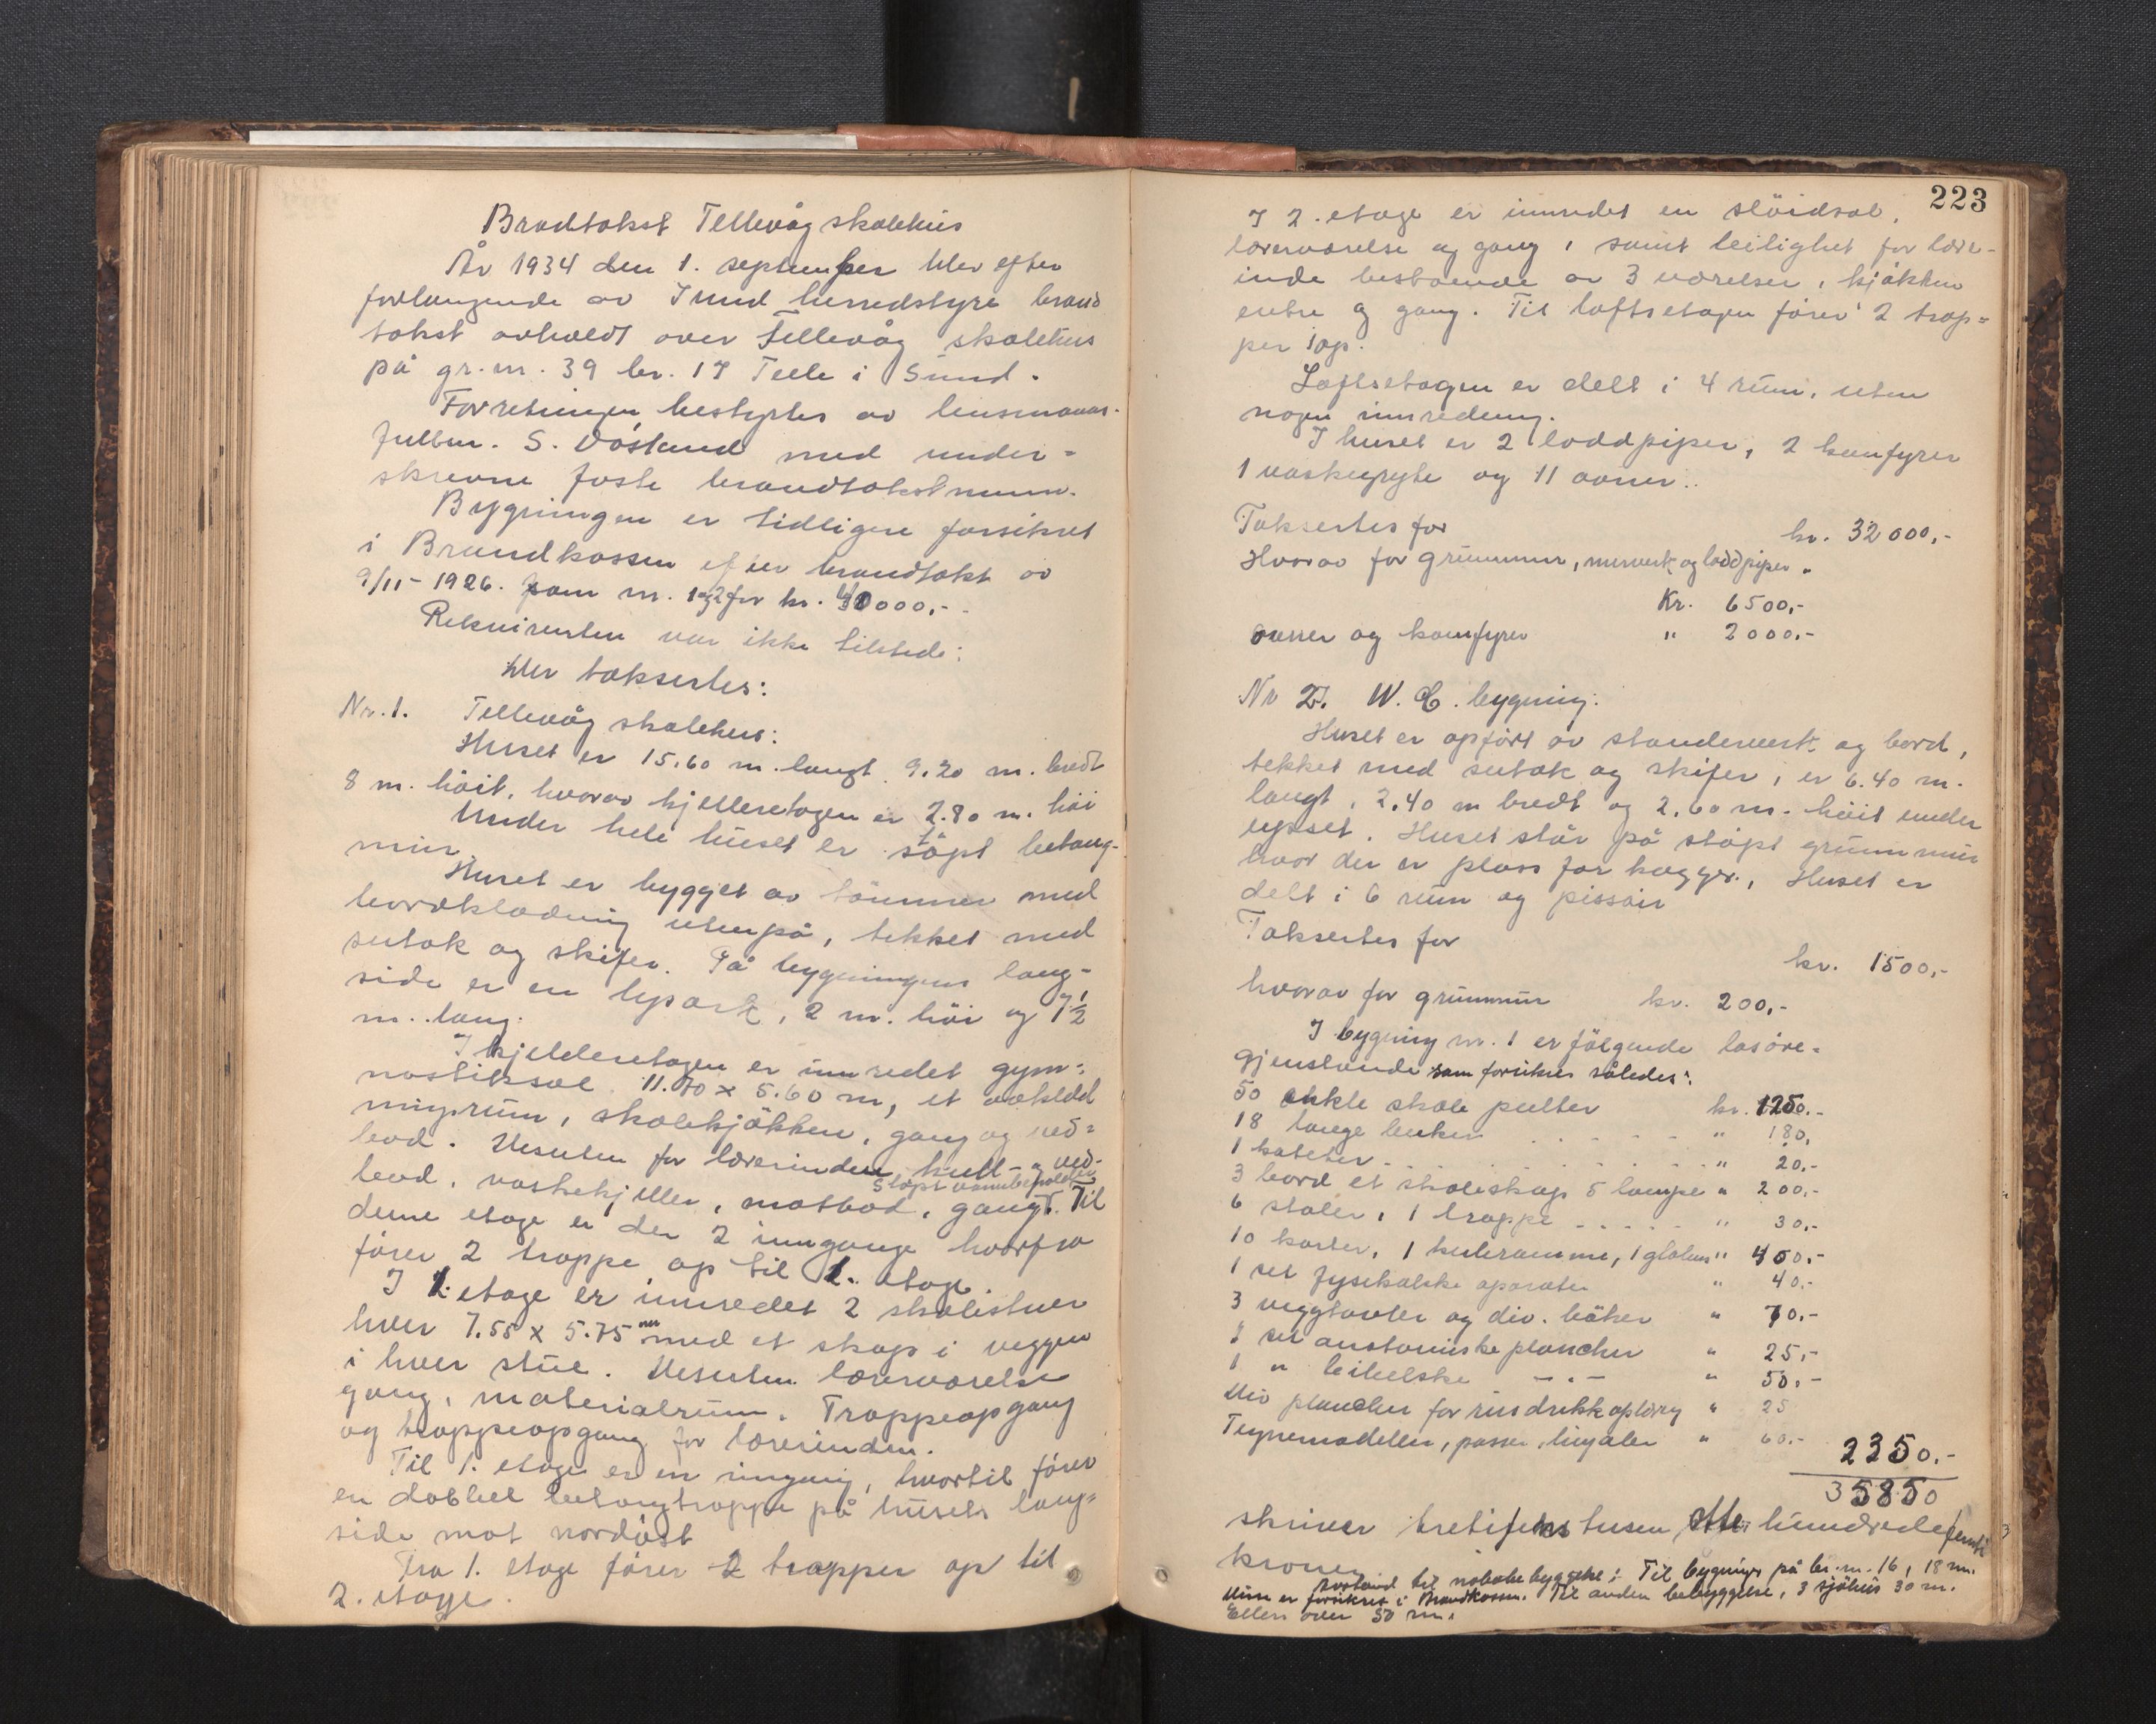 Brandtakst Tellevåg skolehus
År 1934 den 1. september blev efter
forlangende av Sund herredstyre brand
takst avholdt over Tellevåg skolehus
på gr. nr. 39 br. 17 Telle i Sund.
Forretningen bestyrtes av lensmanns-
fullm. S. Vostand med under-
skrevne faste brandtakstmenn.
Bygningen er tidligere forsikret
i Brandkassen efter brandtakst av
9/11-1926. som nr. 1 og 2 for kr. 000,-
Rekvirenten var ikke tilstede:
Der taksertes:
Nr. 1. Tellevåg skolehus:
Huset er 15.60 m. langt. 9.20 m. bredt
8 m. höit, hvorav kjelleretagen er 2.80 m. höi
Under hele huset er stöpt betong-
mur.
Huset er bygget av tömmer med
bordklædning utenpå, tekket med
sutak og skifer. På bygningens lang-
side er en liten ark, 2 m. höi og 7½
m. lang.
I kjelleretagen er innredet gym-
nastiksal 11.70 x 5.60 m, et avkledd
ningsrum, skolekjökken, gang og ved-
bod. Desuten for lærerinden kull- og ved-
bod, vaskekjeller, matbod, gang. Til
stöpt vannbeholder
denne etage er der 2 innganger hvorfra
förer 2 trappe op til 1. etage.
I 1. etage er innredet 2 skolestuer
hver 7.55 x 5.75 m med et skap i veggen
i hver stue. Desuten lærerværelse
gang, materialrum. Trappeopgang
og trappeopgang for lærerinden.
Til 1. etage er en ingang, hvortil förer
en dobbel betongtrappe på husets lang-
side mot nordöst
Fra 1. etage förer 2 trapper op til
2. etage.
223
I 2. etage er innredet en slöidsal,
lærerværelse og gang, samt leilighet for lærer-
inde bestående av 3 værelser, kjökken
entre og gang. Til loftsetagen förer 2 trap-
per op.
Loftsetagen er delt i 4 rum, uten
nogen innredning.
I huset er 2 loddpiper, 2 komfyrer
1 vaskegryte og 11 ovner.
Taksertes for kr. 32000,-
Hvorav for grunnmur, murverk og loddpiper
Kr. 6500,-
ovner og komfyrer " 2000,-
Nr 2. W.C. bygning:
Huset er opfört av standerverk og bord,
tekket med sutak og skifer, er 6.40 m.
langt, 2.40 m bredt og 2,60 m. höit under
upset. Huset står på stöpt grunnmur
hvor der er plass for kagger. Huset er
delt i 6 rum og pissoir
Taksertes for kr. 1500,-
hvorav for grunnmur kr. 200,-
I bygning nr. 1 er fölgende lösöre-
gjenstande som forsikres således:
50 enkle skole pulter kr. 1250.-
18 lange benker " 180,
1 kateter " 20.-
3 bord et skoleskap 5 lampe " 200,-
6 stoler, 1 trappe " 30,-
10 karter, 1 kuleramme, 1 globus " 400,-
1 set fysikalske aparater " 40.-
3 veggtavler og div. böker " 70.-
1 set anatomiske plancher " 25,-
1 " bibelske -"- " 50.-
Div plancher for rusdrikkoplæring " 25
Tegnemodeller, passer, linjaler " 60.-
2350.-
35850
skriver tretifemtusen otte hundrede femti
kroner
Avstand til nabobebyggelse: Til bygning på br. nr. 16, 18 m.
Denne er forsikret i Brandkassen. Til anden bebyggelse, 3 sjöhus 30 m.
Ellers over 50 m.